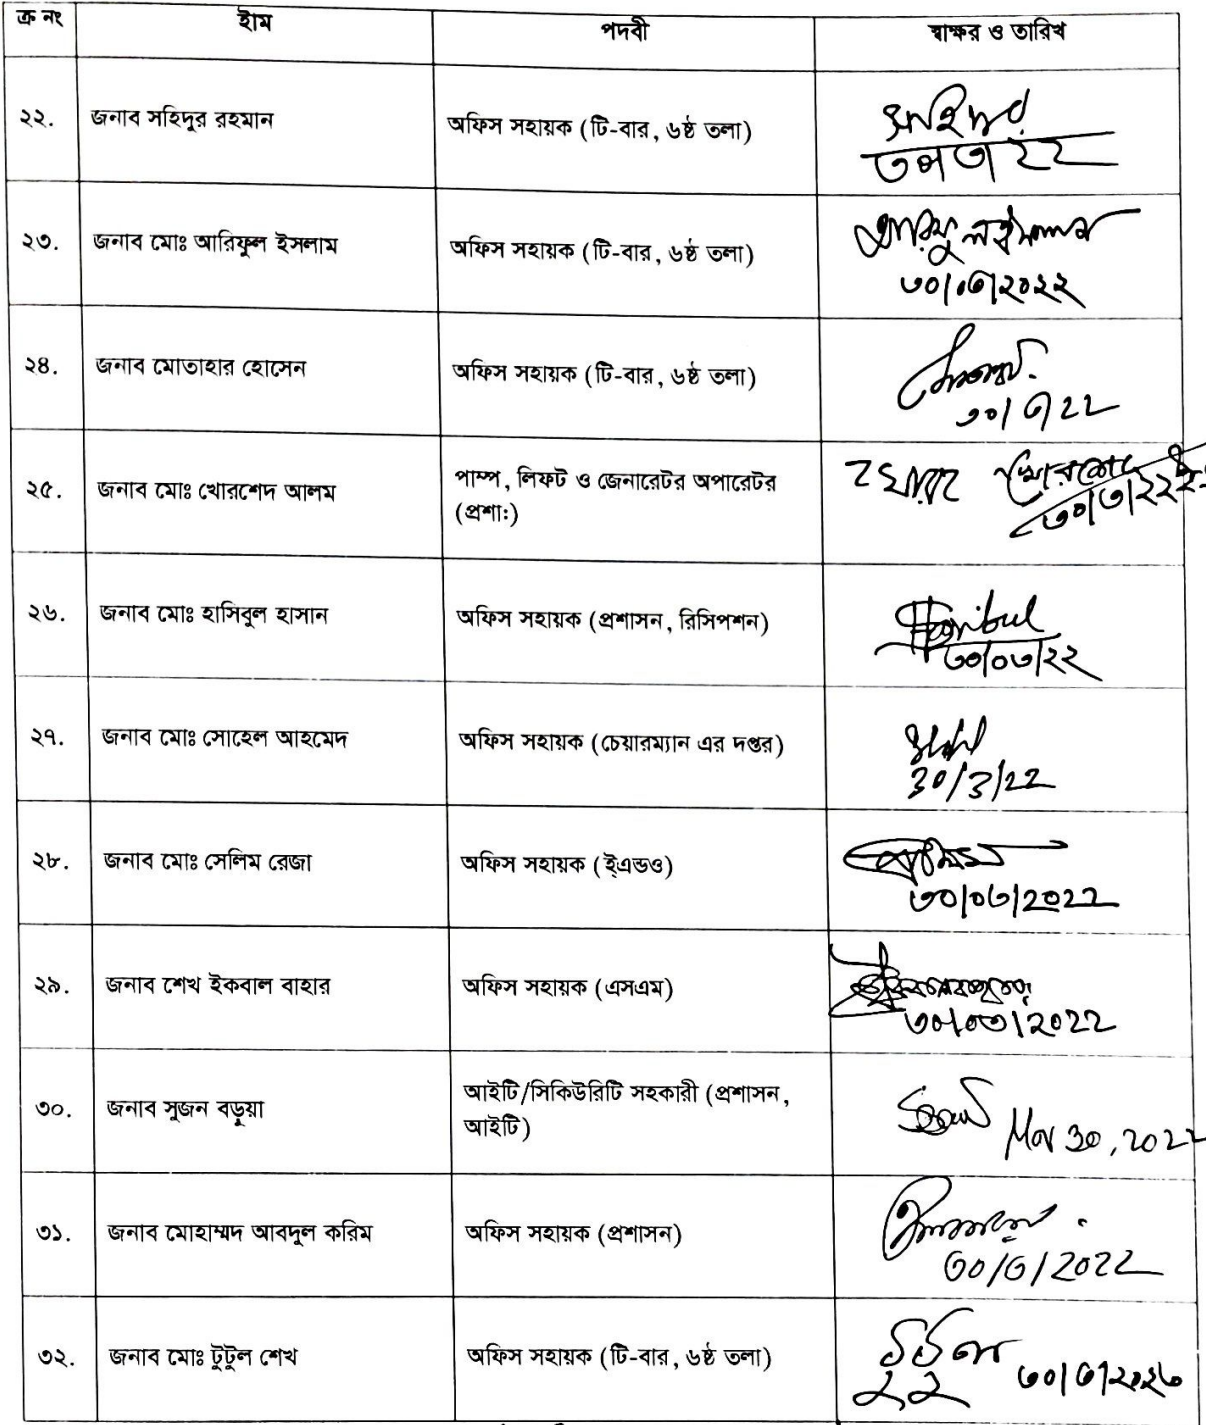 ক্র নং ইাম পদবী স্বাক্ষর ও তারিখ
২২. জনাব সহিদুর রহমান অফিস সহায়ক (টি-বার, ৬ষ্ঠ তলা) সহিদুর
৩০/৩/২২
২৩. জনাব মোঃ আরিফুল ইসলাম অফিস সহায়ক (টি-বার, ৬ষ্ঠ তলা) আরিফুল ইসলাম
৩০/০৩/২০২২
২৪. জনাব মোতাহার হোসেন অফিস সহায়ক (টি-বার, ৬ষ্ঠ তলা)
৩০/৩/22
২৫. জনাব মোঃ খোরশেদ আলম পাম্প, লিফট ও জেনারেটর অপারেটর
(প্রশা:) খোরশেদ
৩০/৩/২২
২৬. জনাব মোঃ হাসিবুল হাসান অফিস সহায়ক (প্রশাসন, রিসিপশন) Hasibul
৩০/০৩/২২
২৭. জনাব মোঃ সোহেল আহমেদ অফিস সহায়ক (চেয়ারম্যান এর দপ্তর)
30/3/22
২৮. জনাব মোঃ সেলিম রেজা অফিস সহায়ক (ইএন্ডও)
৩০/০৩/2022
২৯. জনাব শেখ ইকবাল বাহার অফিস সহায়ক (এসএম)
৩০/০৩/২০22
৩০. জনাব সুজন বড়ুয়া আইটি/সিকিউরিটি সহকারী (প্রশাসন,
আইটি) Mar 30, 2022
৩১. জনাব মোহাম্মদ আবদুল করিম অফিস সহায়ক (প্রশাসন)
৩০/৩/2022
৩২. জনাব মোঃ টুটুল শেখ অফিস সহায়ক (টি-বার, ৬ষ্ঠ তলা) টুটুল